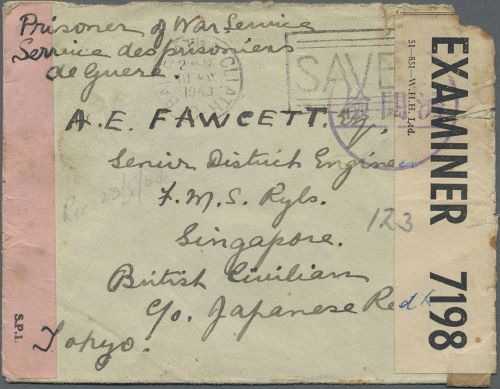 Prisoner of War Service
Service des prisoniers
de Guere
SAVE
1943
A. E. FAWCETT. Esq.
Senior District Engineer
F.M.S. Rlys.
Singapore.
British Civilian
c/o. Japanese Red X
Tokyo.
123
S.P.1.
51-851-W.H.H. Ltd.
EXAMINER 7198